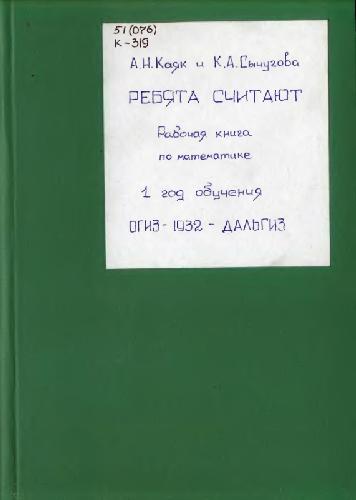 51(076)
К-319
А.Н.Каяк и К.А.Сычугова
РЕБЯТА СЧИТАЮТ
Рабочая книга
по математике
1 год обучения
ОГИЗ-1932-ДАЛЬГИЗ